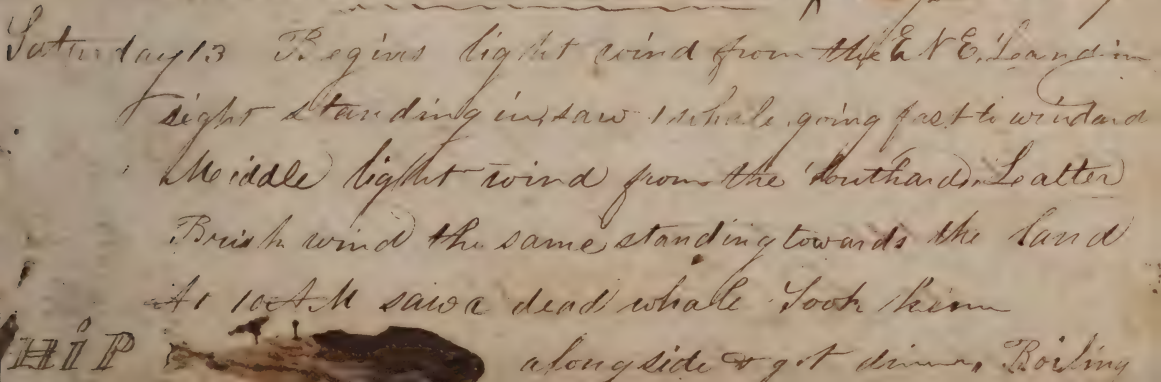 Saturday 13 Begins light wind from the E N E. Land in
sight standing in, saw 1 whale going fast to windard
Meiddle light wind from the Southard. Latter
Brish wind the same standing towards the land
At 10 A M saw a dead whale Took him
HIP alongside & got dinner, Boiling